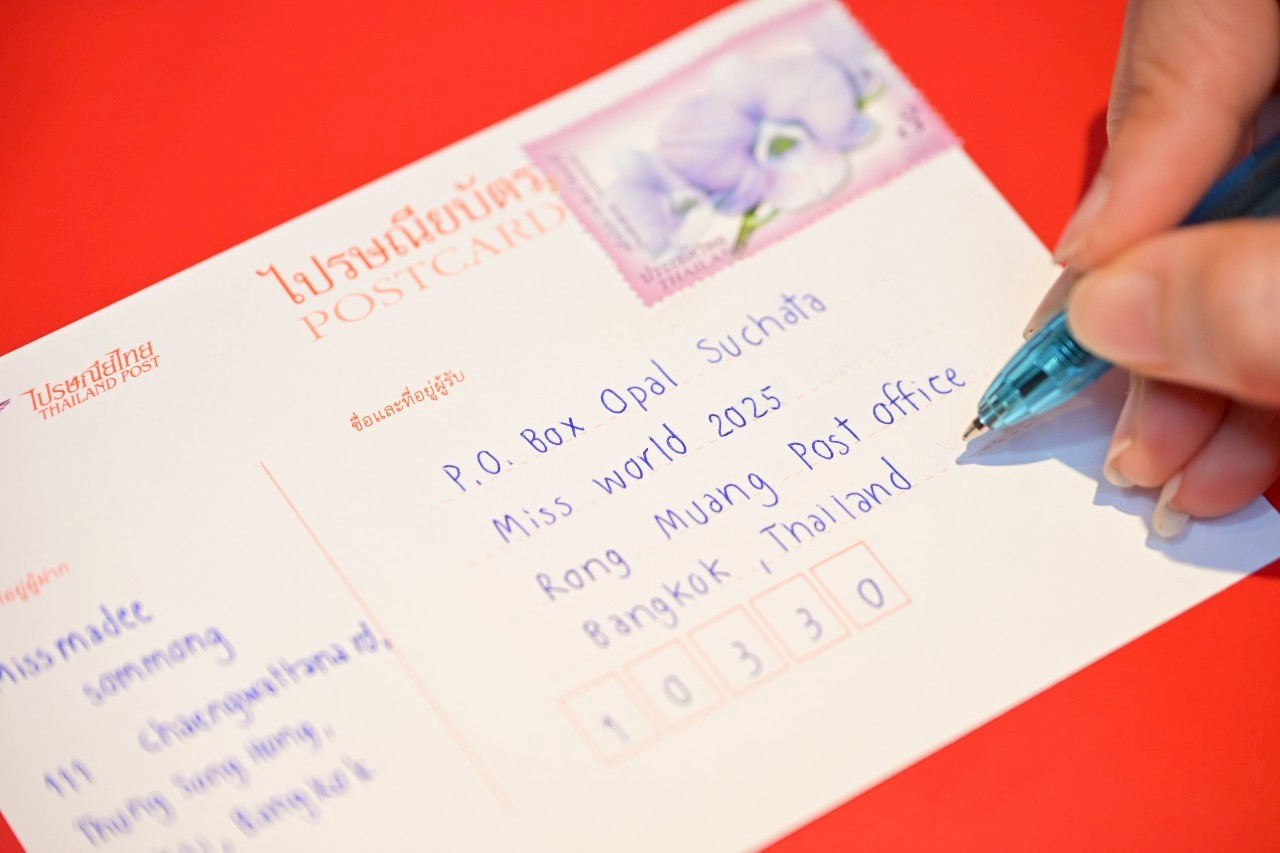 ไปรษณียบัตร
POSTCARD
ประเทศไทย
THAILAND
3
ไปรษณีย์ไทย
THAILAND POST
ชื่อและที่อยู่ผู้รับ
P.O. Box Opal Suchata
Miss world 2025
Rong Muang Post office
Bangkok, Thailand
10330
ที่อยู่ผู้ฝาก
Miss madee
sommong
111 Chaengwattana rd,
Thung Song Hong,
Bangkok